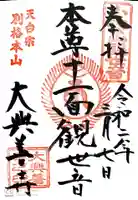 奉拝
令和二年
三月七日
本尊十一面観世音
天台宗
別格本山
大興善寺